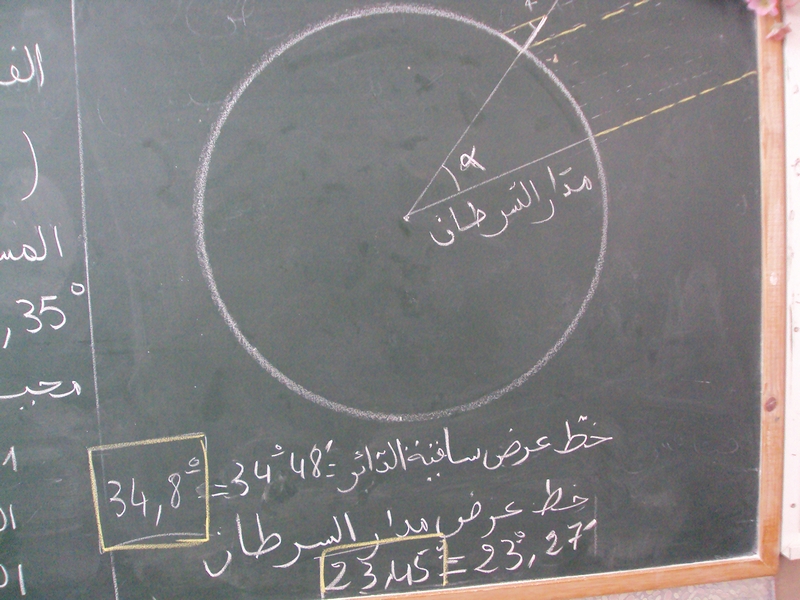 α
مدار السرطان
خط عرض ساقية الدائر = 34°48' = 34,8°
خط عرض مدار السرطان
23,45° = 23°,27'
الف
)
المس
,35°
محيـ